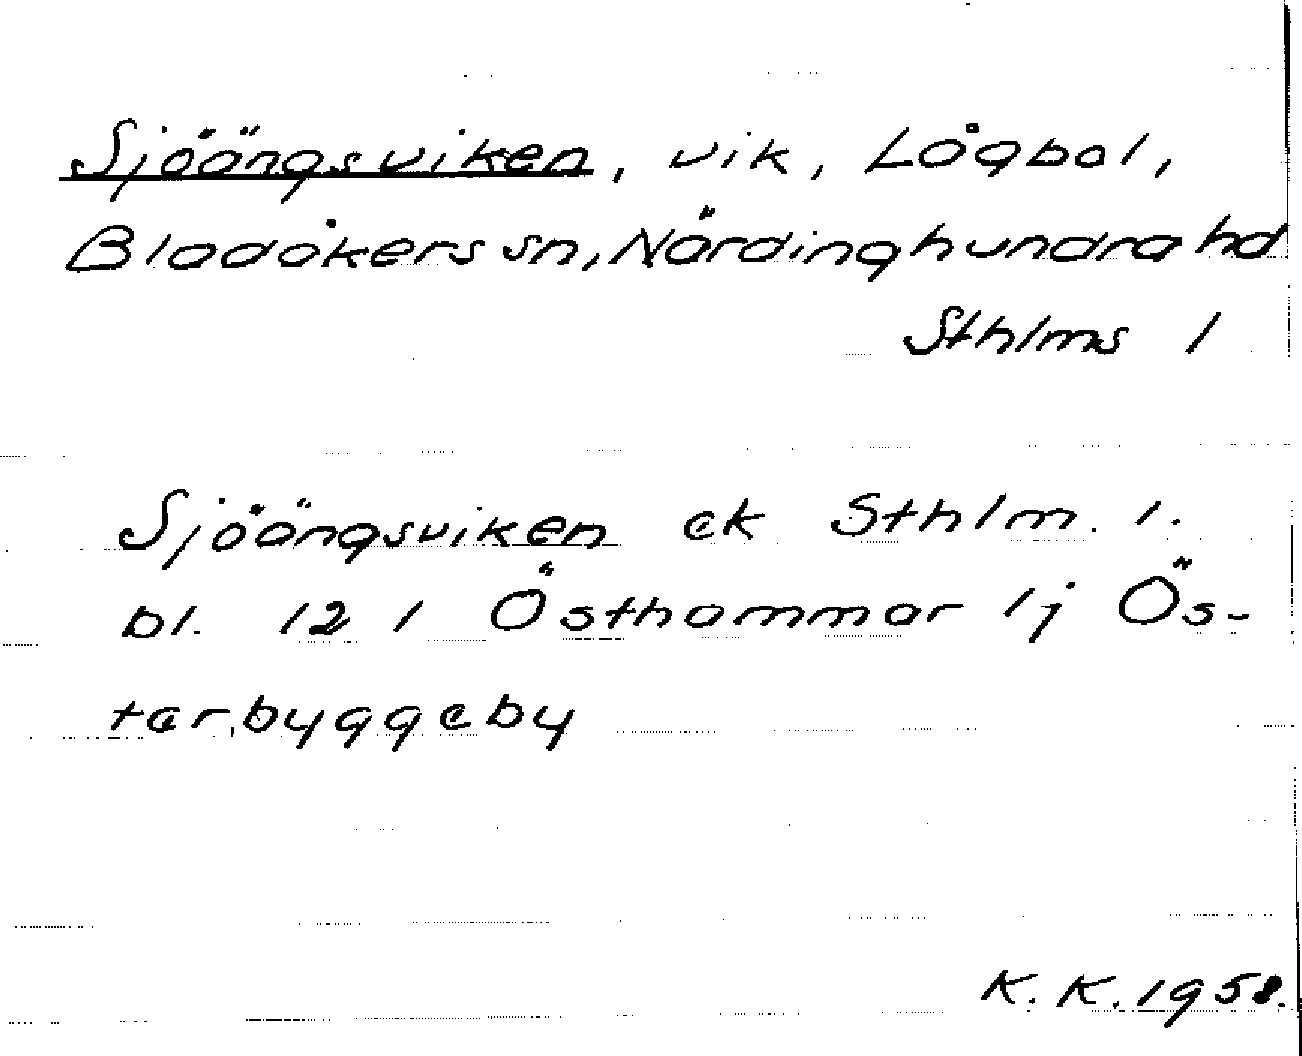 Sjöängsviken, vik, Lågbol,
Bladåkers sn, Närdinghundra hd
Sthlms l
Sjöängsviken ek Sthlm. l.
bl. 12 1 Östhammar 1j Ös-
terbyggeby
K. K. 1958.